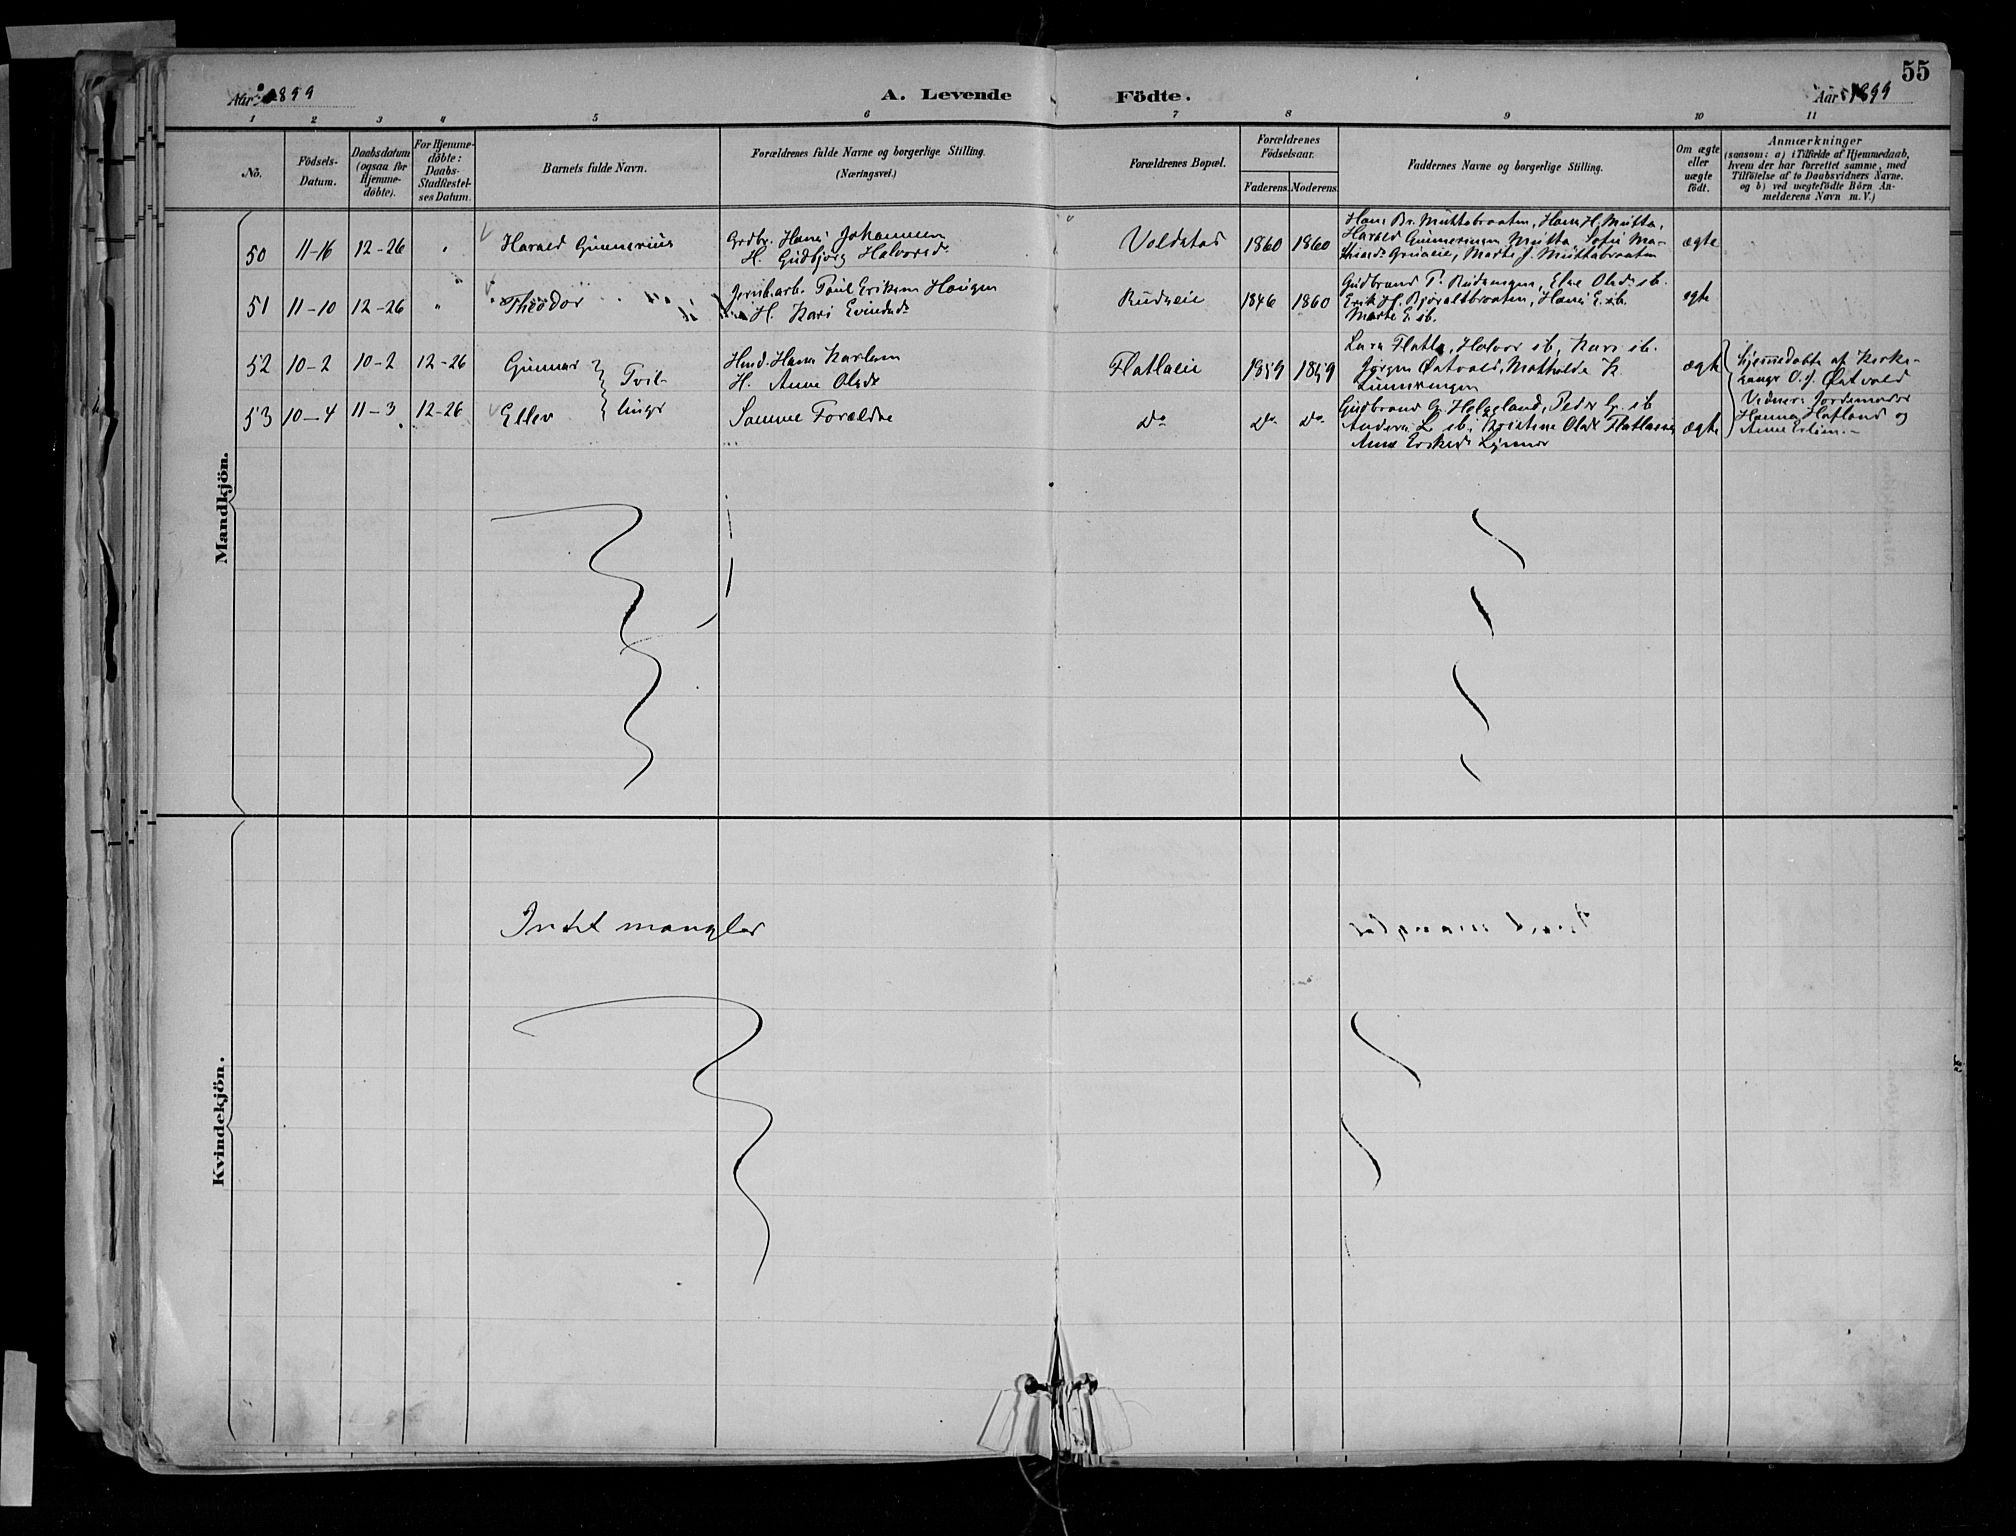 55
Aar 1899
A. Levende Födte.
Aar 1899
1 2 3 4 5 6 7 8 9 10 11
No.
Födsels-Datum.
Daabsdatum (ogsaa for Hjemme-döbte).
For Hjemme-döbte: Daabs-Stadfæstel-ses Datum.
Barnets fulde Navn.
Forældrenes fulde Navne og borgerlige Stilling.
(Næringsvei.)
Forældrenes Bopæl.
Forældrenes Födselsaar.
Faderens. Moderens.
Faddernes Navne og borgerlige Stilling.
Om ægte eller uægte födt.
Anmærkninger
(saasom: a) i Tilfælde af Hjemmedaab,
hvem der har forrettet samme, med
Tilföielse af to Daabsvidners Navne.
og b) ved uægtefödte Börn An-
melderens Navn m. V.)
Mandkjön.
50 11-16 12-26 " Harald Gunnerius
Grdbr. Hans Johannsen
H. Gudbjørg Halvorsd.
Voldstad 1860 1860
Hans Br. Muttabraaten, Hans H. Mutta,
Harald Gunneriusen Mutta, Sofie Ma-
Grinaeie, Marte J. Muttabraaten
ægte
51 11-10 12-26 " Theodor
Jernb.arb. Paul Eriksen Haugen
H. Kari Evindsd.
Rudseie 1846 1860
Gudbrand P. Rudsengen, Else Olsd. sb.
Erik H. Bjøraltbraaten, Hans E. sb.
Marte E. sb.
egte
52 10-2 10-2 12-26 Gunnar
Tvil-
linger
Husd. Hans Karlsen
H. Anne Olsdr
Flatlaeie 1859 1859
Lars Flatla, Halvor sb, Kari sb.
Jørgen Østvold, Mathilde K.
ægte
Hjemmedøbte af Kirke-
sanger O. J. Østvold
Vidner: Jordemoder
Hanna Hafland og
Anne
53 10-4 11-3 12-26 Ellev
Samme Forældre
Do Do Do
Gudbrand G. Helgeland, Peder G. sb
Anders L. sb, Kristine Olsd. Flatlaeie,
Anne Eriksd.
ægte
Kvindekjön.
Intet mangler